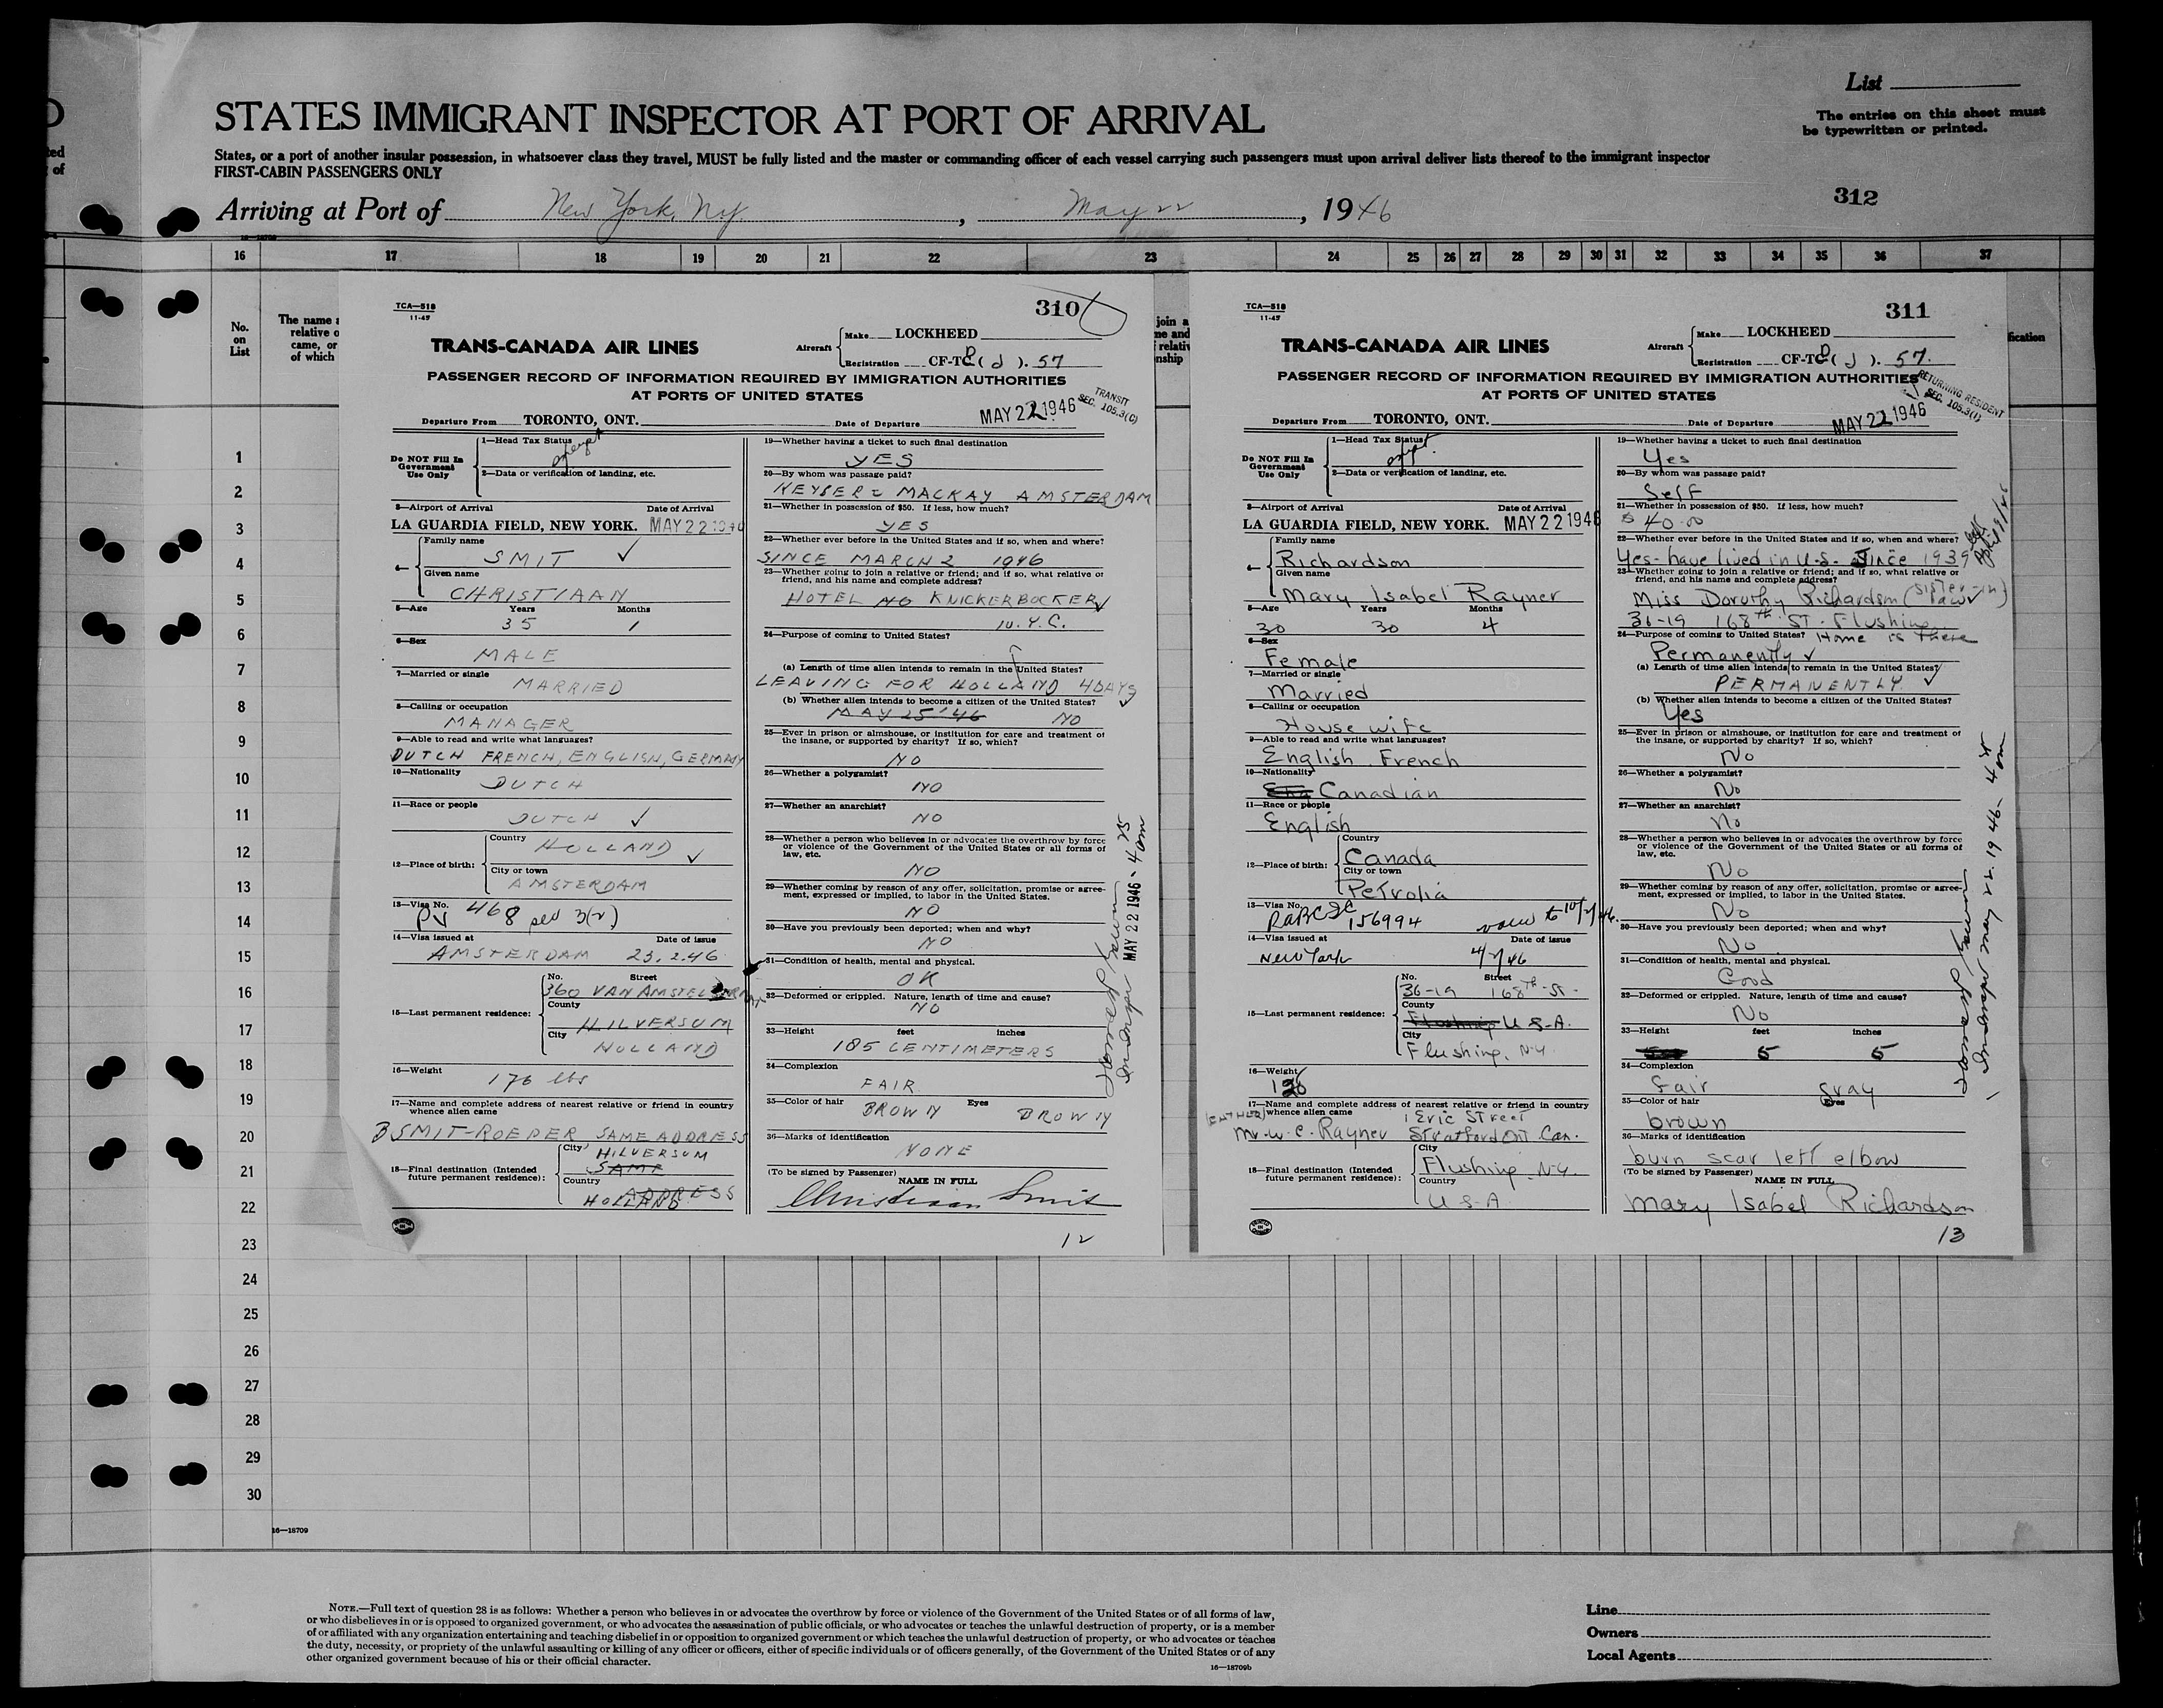 List
STATES IMMIGRANT INSPECTOR AT PORT OF ARRIVAL
The entries on this sheet must
be typewritten or printed.
States, or a port of another insular possession, in whatsoever class they travel, MUST be fully listed and the master or commanding officer of each vessel carrying such passengers must upon arrival deliver lists thereof to the immigrant inspector
FIRST-CABIN PASSENGERS ONLY
312
Arriving at Port of New York, NY, May 22, 1946
16 17 18 19 20 21 22 23 24 25 26 27 28 29 30 31 32 33 34 35 36 37
No.
on
List
The name a
relative o
came, or
of which
1
2
3
4
5
6
7
8
9
10
11
12
13
14
15
16
17
18
19
20
21
22
23
24
25
26
27
28
29
30
TCA—518
11-45
310
TRANS-CANADA AIR LINES
Aircraft
Make LOCKHEED
Registration CF-TC D (J). 57
PASSENGER RECORD OF INFORMATION REQUIRED BY IMMIGRATION AUTHORITIES
AT PORTS OF UNITED STATES
TRANSIT
SEC. 105.3(C)
Departure From TORONTO, ONT. Date of Departure MAY 22 1946
Do NOT Fill In
Government
Use Only
1—Head Tax Status exempt
2—Data or verification of landing, etc.
3—Airport of Arrival Date of Arrival
LA GUARDIA FIELD, NEW YORK. MAY 22 1946
4—
Family name
SMIT
Given name
CHRISTIAAN
5—Age Years Months
35 1
6—Sex
MALE
7—Married or single
MARRIED
8—Calling or occupation
MANAGER
9—Able to read and write what languages?
DUTCH FRENCH, ENGLISH, GERMANY
10—Nationality
DUTCH
11—Race or people
DUTCH
12—Place of birth:
Country
HOLLAND
City or town
AMSTERDAM
13—Visa No.
PV 468 sec 3(2)
14—Visa issued at Date of issue
AMSTERDAM 23.2.46
15—Last permanent residence:
No. Street
360 VAN
County
HILVERSUM
City
HOLLAND
16—Weight
176 lbs
17—Name and complete address of nearest relative or friend in country
whence alien came
B SMIT-ROEPER SAME ADDRESS
18—Final destination (Intended
future permanent residence):
City HILVERSUM
SAME
Country
ADDRESS
HOLLAND
19—Whether having a ticket to such final destination
YES
20—By whom was passage paid?
KEYSER & MACKAY AMSTERDAM
21—Whether in possession of $50. If less, how much?
YES
22—Whether ever before in the United States and if so, when and where?
SINCE MARCH 2 1946
23—Whether going to join a relative or friend; and if so, what relative or
friend, and his name and complete address?
HOTEL KNICKERBOCKER
N.Y.C.
24—Purpose of coming to United States?
(a) Length of time alien intends to remain in the United States?
LEAVING FOR HOLLAND 4 DAYS
(b) Whether alien intends to become a citizen of the United States?
MAY 25 '46 NO
25—Ever in prison or almshouse, or institution for care and treatment of
the insane, or supported by charity? If so, which?
NO
26—Whether a polygamist?
NO
27—Whether an anarchist?
NO
28—Whether a person who believes in or advocates the overthrow by force
or violence of the Government of the United States or all forms of
law, etc.
NO
29—Whether coming by reason of any offer, solicitation, promise or agree-
ment, expressed or implied, to labor in the United States.
NO
30—Have you previously been deported; when and why?
NO
31—Condition of health, mental and physical.
OK
32—Deformed or crippled. Nature, length of time and cause?
NO
33—Height feet inches
185 CENTIMETERS
34—Complexion
FAIR
35—Color of hair Eyes
BROWN BROWN
36—Marks of identification
NONE
(To be signed by Passenger)
NAME IN FULL
Christiaan Smit
12
MAY 22 1946 - 4 25 pm
join a
me and
relativ
nship
TCA—518
11-45
311
TRANS-CANADA AIR LINES
Aircraft
Make LOCKHEED
Registration CF-TC D (J). 57.
PASSENGER RECORD OF INFORMATION REQUIRED BY IMMIGRATION AUTHORITIES
AT PORTS OF UNITED STATES
RETURNING RESIDENT
SEC. 105.3(1)
Departure From TORONTO, ONT. Date of Departure MAY 22 1946
Do NOT Fill In
Government
Use Only
1—Head Tax Status
2—Data or verification of landing, etc.
3—Airport of Arrival Date of Arrival
LA GUARDIA FIELD, NEW YORK. MAY 22 1946
4—
Family name
Richardson
Given name
Mary Isabel Rayner
5—Age Years Months
30 30 4
6—Sex
Female
7—Married or single
Married
8—Calling or occupation
House wife
9—Able to read and write what languages?
English French
10—Nationality
Canadian
11—Race or people
English
12—Place of birth:
Country
Canada
City or town
Petrolia
13—Visa No.
156994
14—Visa issued at Date of issue
New York 4/ /46
15—Last permanent residence:
No. Street
36-19 168th St.
County
Flushing U.S.A.
City
Flushing, N.Y.
16—Weight
17—Name and complete address of nearest relative or friend in country
whence alien came
(FATHER) 1 Eric Street
Mr. W. C. Rayner Stratford Ont. Can.
18—Final destination (Intended
future permanent residence):
City
Flushing N.Y.
Country
U.S.A.
19—Whether having a ticket to such final destination
Yes
20—By whom was passage paid?
Self
21—Whether in possession of $50. If less, how much?
$40.00
22—Whether ever before in the United States and if so, when and where?
Yes - have lived in U.S. Since 1939
23—Whether going to join a relative or friend; and if so, what relative or
friend, and his name and complete address?
Miss Dorothy Richardson (sister-in-law)
36-19 168th St. Flushing
24—Purpose of coming to United States? Home is there
Permanently
(a) Length of time alien intends to remain in the United States?
PERMANENTLY
(b) Whether alien intends to become a citizen of the United States?
Yes
25—Ever in prison or almshouse, or institution for care and treatment of
the insane, or supported by charity? If so, which?
No
26—Whether a polygamist?
No
27—Whether an anarchist?
No
28—Whether a person who believes in or advocates the overthrow by force
or violence of the Government of the United States or all forms of
law, etc.
No
29—Whether coming by reason of any offer, solicitation, promise or agree-
ment, expressed or implied, to labor in the United States.
No
30—Have you previously been deported; when and why?
No
31—Condition of health, mental and physical.
Good
32—Deformed or crippled. Nature, length of time and cause?
No
33—Height feet inches
5 5
34—Complexion
fair gray
35—Color of hair Eyes
brown
36—Marks of identification
burn scar left elbow
(To be signed by Passenger)
NAME IN FULL
Mary Isabel Richardson
13
May 22 1946 - 4 25 pm
fication
16—18709
NOTE.—Full text of question 28 is as follows: Whether a person who believes in or advocates the overthrow by force or violence of the Government of the United States or of all forms of law,
or who disbelieves in or is opposed to organized government, or who advocates the assassination of public officials, or who advocates or teaches the unlawful destruction of property, or is a member
of or affiliated with any organization entertaining and teaching disbelief in or opposition to organized government or which teaches the unlawful destruction of property, or who advocates or teaches
the duty, necessity, or propriety of the unlawful assaulting or killing of any officer or officers, either of specific individuals or of officers generally, of the Government of the United States or of any
other organized government because of his or their official character.
16—18709b
Line
Owners
Local Agents